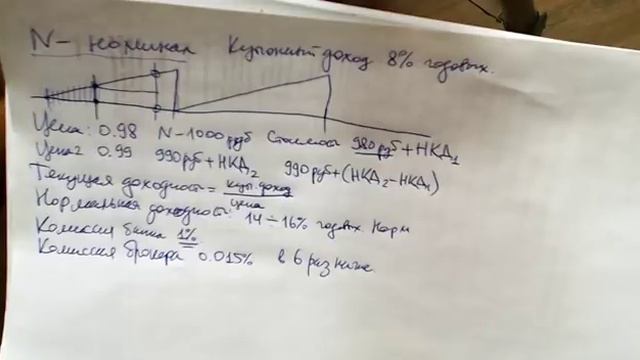 N - номинал Купонный доход 8% годовых.
Цена: 0.98 N-1000руб Стоимость 980руб+НКД₁
Цена2 0.99 990руб+НКД₂ 990руб+(НКД₂-НКД₁)
Текущая доходность = куп.доход
цена
Нормальная доходность: 14÷16% годовых. Норм
Комиссия банка 1%
Комиссия брокера 0.015% в 6 раз ниже